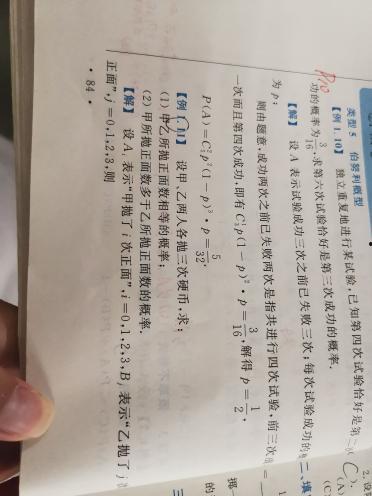 类型 5 伯努利概型
【例 1.10】 独立重复地进行某试验,已知第四次试验恰好是第二次
功的概率为 3/16,求第六次试验恰好是第三次成功的概率.
【解】 设 A 表示试验成功三次之前已失败三次;每次试验成功的
为 p;
则由题意,成功两次之前已失败两次是指共进行四次试验,前三次
一次而且第四次成功,即有 C₃¹p(1-p)²·p=3/16,解得 p=1/2,
P(A)=C₅²p²(1-p)³·p=5/32.
【例 1.11】 设甲、乙两人各抛三次硬币,求:
(1) 甲乙所抛正面数相等的概率;
(2) 甲所抛正面数多于乙所抛正面数的概率.
【解】 设 Aᵢ 表示“甲抛了 i 次正面”,i=0,1,2,3,Bⱼ 表示“乙抛了 j
正面”,j=0,1,2,3,则
· 84 ·
Pro
2. 设
(A)
(C)
二、填
掷一
的
三